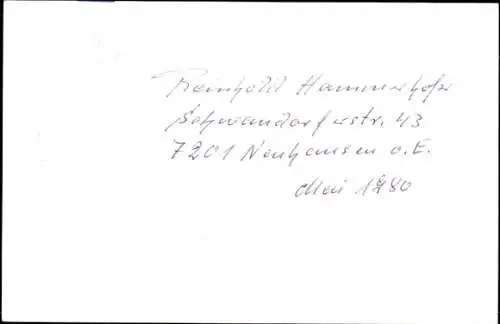 Reinhold Hammerhofer
Schwandorferstr. 43
7201 Neuhausen o.E.
Mai 1980